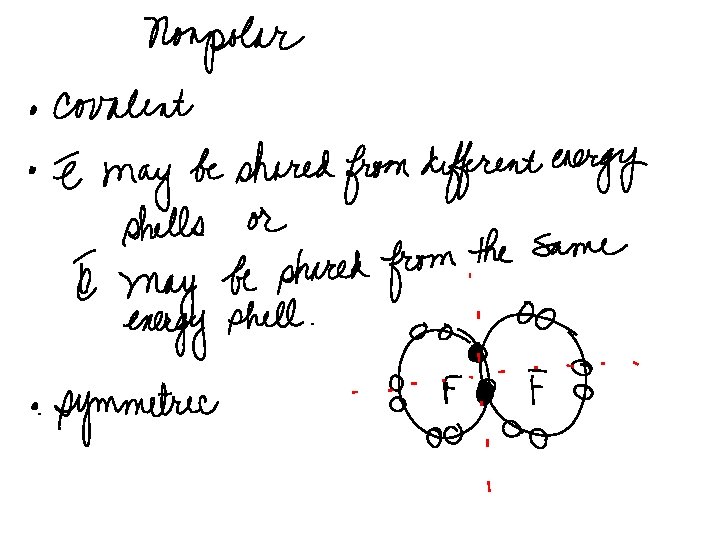 Nonpolar
• Covalent
• ē may be shared from different energy
shells or
ē may be shared from the same
energy shell.
• symmetric
F F